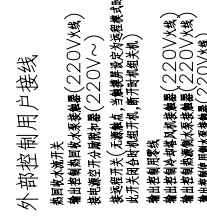 外部控制用户接线
热回收水流开关
输出控制热回收水泵接触器(220V火线)
接电源空开分励脱扣器(220V~)
接远程开关(无源触点,当触摸屏设定为远程模式时
此开关闭合时机组开机,断开时机组关机)
输出控制用零线
输出控制冷却塔风机接触器(220V火线)
输出控制热源侧水泵接触器(220V火线)
输出控制使用侧水泵接触器(220V火线)